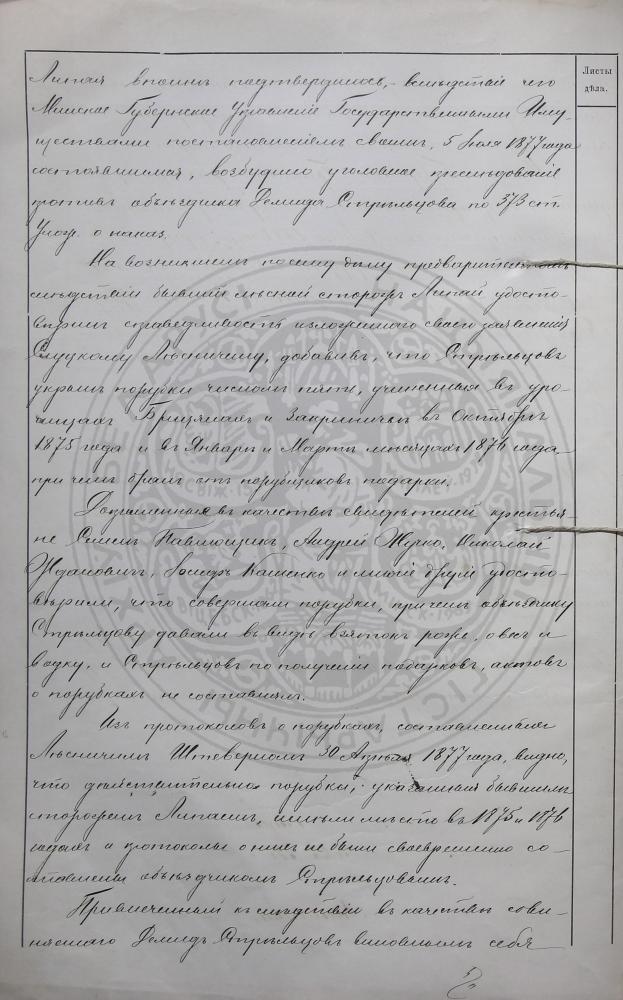 Листы
дѣла.
Липая вполнѣ подтвердилось, – вслѣдствіе чего
Минское Губернское Управленіе Государственными Иму-
ществами постановленіемъ своимъ, 5 Іюля 1877 года
состоявшимся, возбудило уголовное преслѣдованіе
противъ объѣздчика Демида Стрѣльцова по 373 ст.
Улож. о наказ.
На возникшемъ по сему дѣлу предварительномъ
слѣдствіи бывшій лѣсной сторожъ Липай удосто-
вѣрилъ справедливость изложеннаго своего заявленія
Слуцкому Лѣсничему, добавивъ, что Стрѣльцовъ
укрылъ порубки числомъ пять, учиненныя въ уро-
чищахъ и въ Октябрѣ
1875 года и въ Январѣ и Мартѣ мѣсяцахъ 1876 года
при чемъ бралъ отъ порубщиковъ подарки.
Допрошенные въ качествѣ свидѣтелей крестья-
не Семенъ Андрей Журко, Николай
Ждановичъ, и многіе другіе удосто-
вѣрили, что совершали порубки, причемъ объѣздчику
Стрѣльцову давали въ видѣ взятокъ рожь, овесъ и
водку, и Стрѣльцовъ по полученіи подарковъ, актовъ
о порубкахъ не составлялъ.
Изъ протоколовъ о порубкахъ, составленныхъ
Лѣсничимъ 30 Апрѣля 1877 года, видно,
что дѣйствительно порубки, указанныя бывшимъ
сторожемъ Липаемъ, имѣли мѣсто въ 1875 и 1876
годахъ и протоколы о нихъ не были своевременно со-
ставлены объѣздчикомъ Стрѣльцовымъ.
Привлеченный къ слѣдствію въ качествѣ обви-
няемаго Демидъ Стрѣльцовъ виновнымъ себя